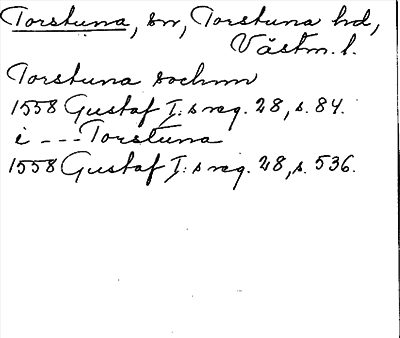 Torstuna, sn, Torstuna hd,
Västm. l.
Torstuna sochnn
1558 Gustaf I:s reg. 28, s. 84.
i --- Torstuna
1558 Gustaf I:s reg. 28, s. 536.